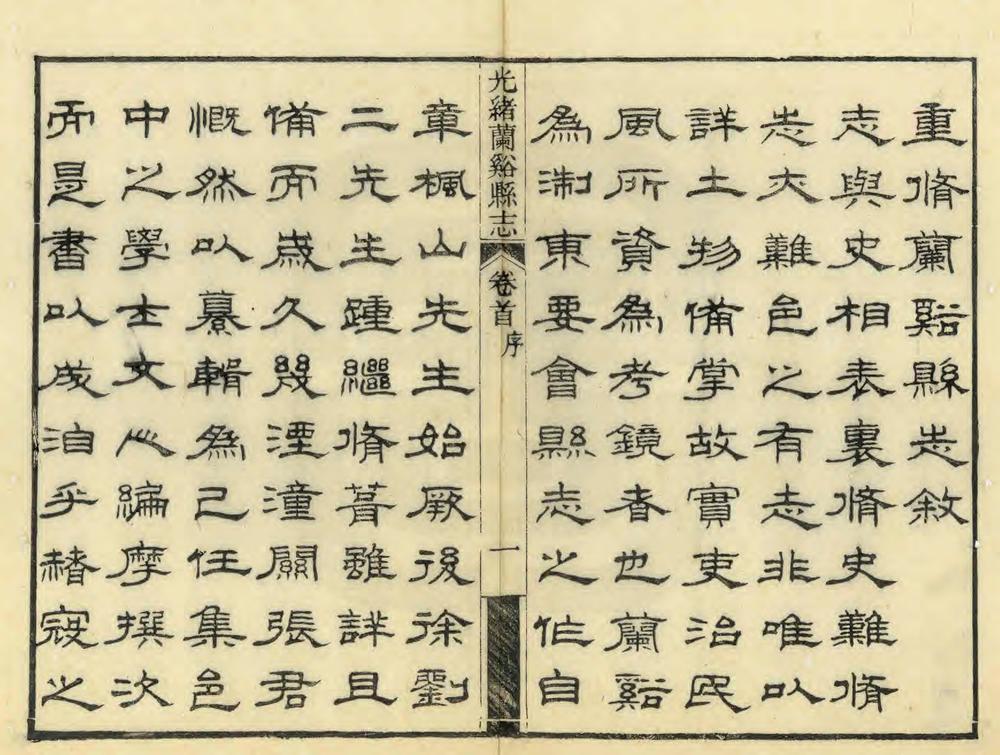 重脩蘭谿縣志敘
志與史相表裏脩史難脩
志亦難邑之有志非唯以
詳土物備掌故實吏治民
風所資為考鏡者也蘭谿
為淛東要會縣志之作自
光緒蘭谿縣志 卷首 序 一
章楓山先生始厥後徐劉
二先生踵繼脩葺雖詳且
備而歲久幾湮潼關張君
慨然以纂輯為己任集邑
中之學士文人編摩撰次
而是書以成洎乎赭寇之